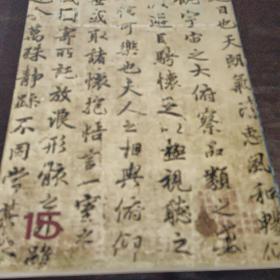 日也天朗氣清惠風和暢
觀宇宙之大俯察品類之盛
以遊目騁懷足以極視聽之
可樂也夫人之相與俯仰
或取諸懷抱悟言一室之
寄所託放浪形骸之
萬殊靜躁不同當其
雖
15